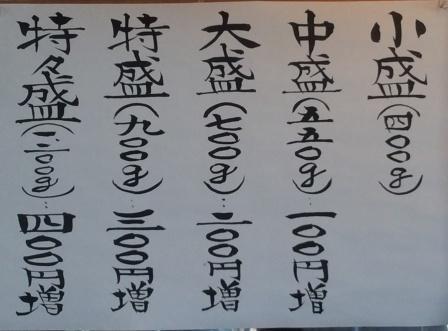 小盛(四〇〇g)
中盛(五五〇g)…一〇〇円増
大盛(七〇〇g)…二〇〇円増
特盛(九〇〇g)…三〇〇円増
特々盛(一二〇〇g)…四〇〇円増